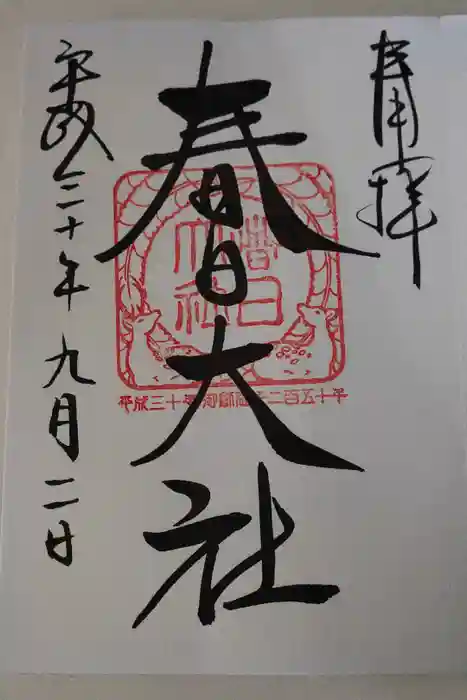 奉拝
春日大社
春日
大社
平成三十年御創建千二百五十年
平成三十年九月二日